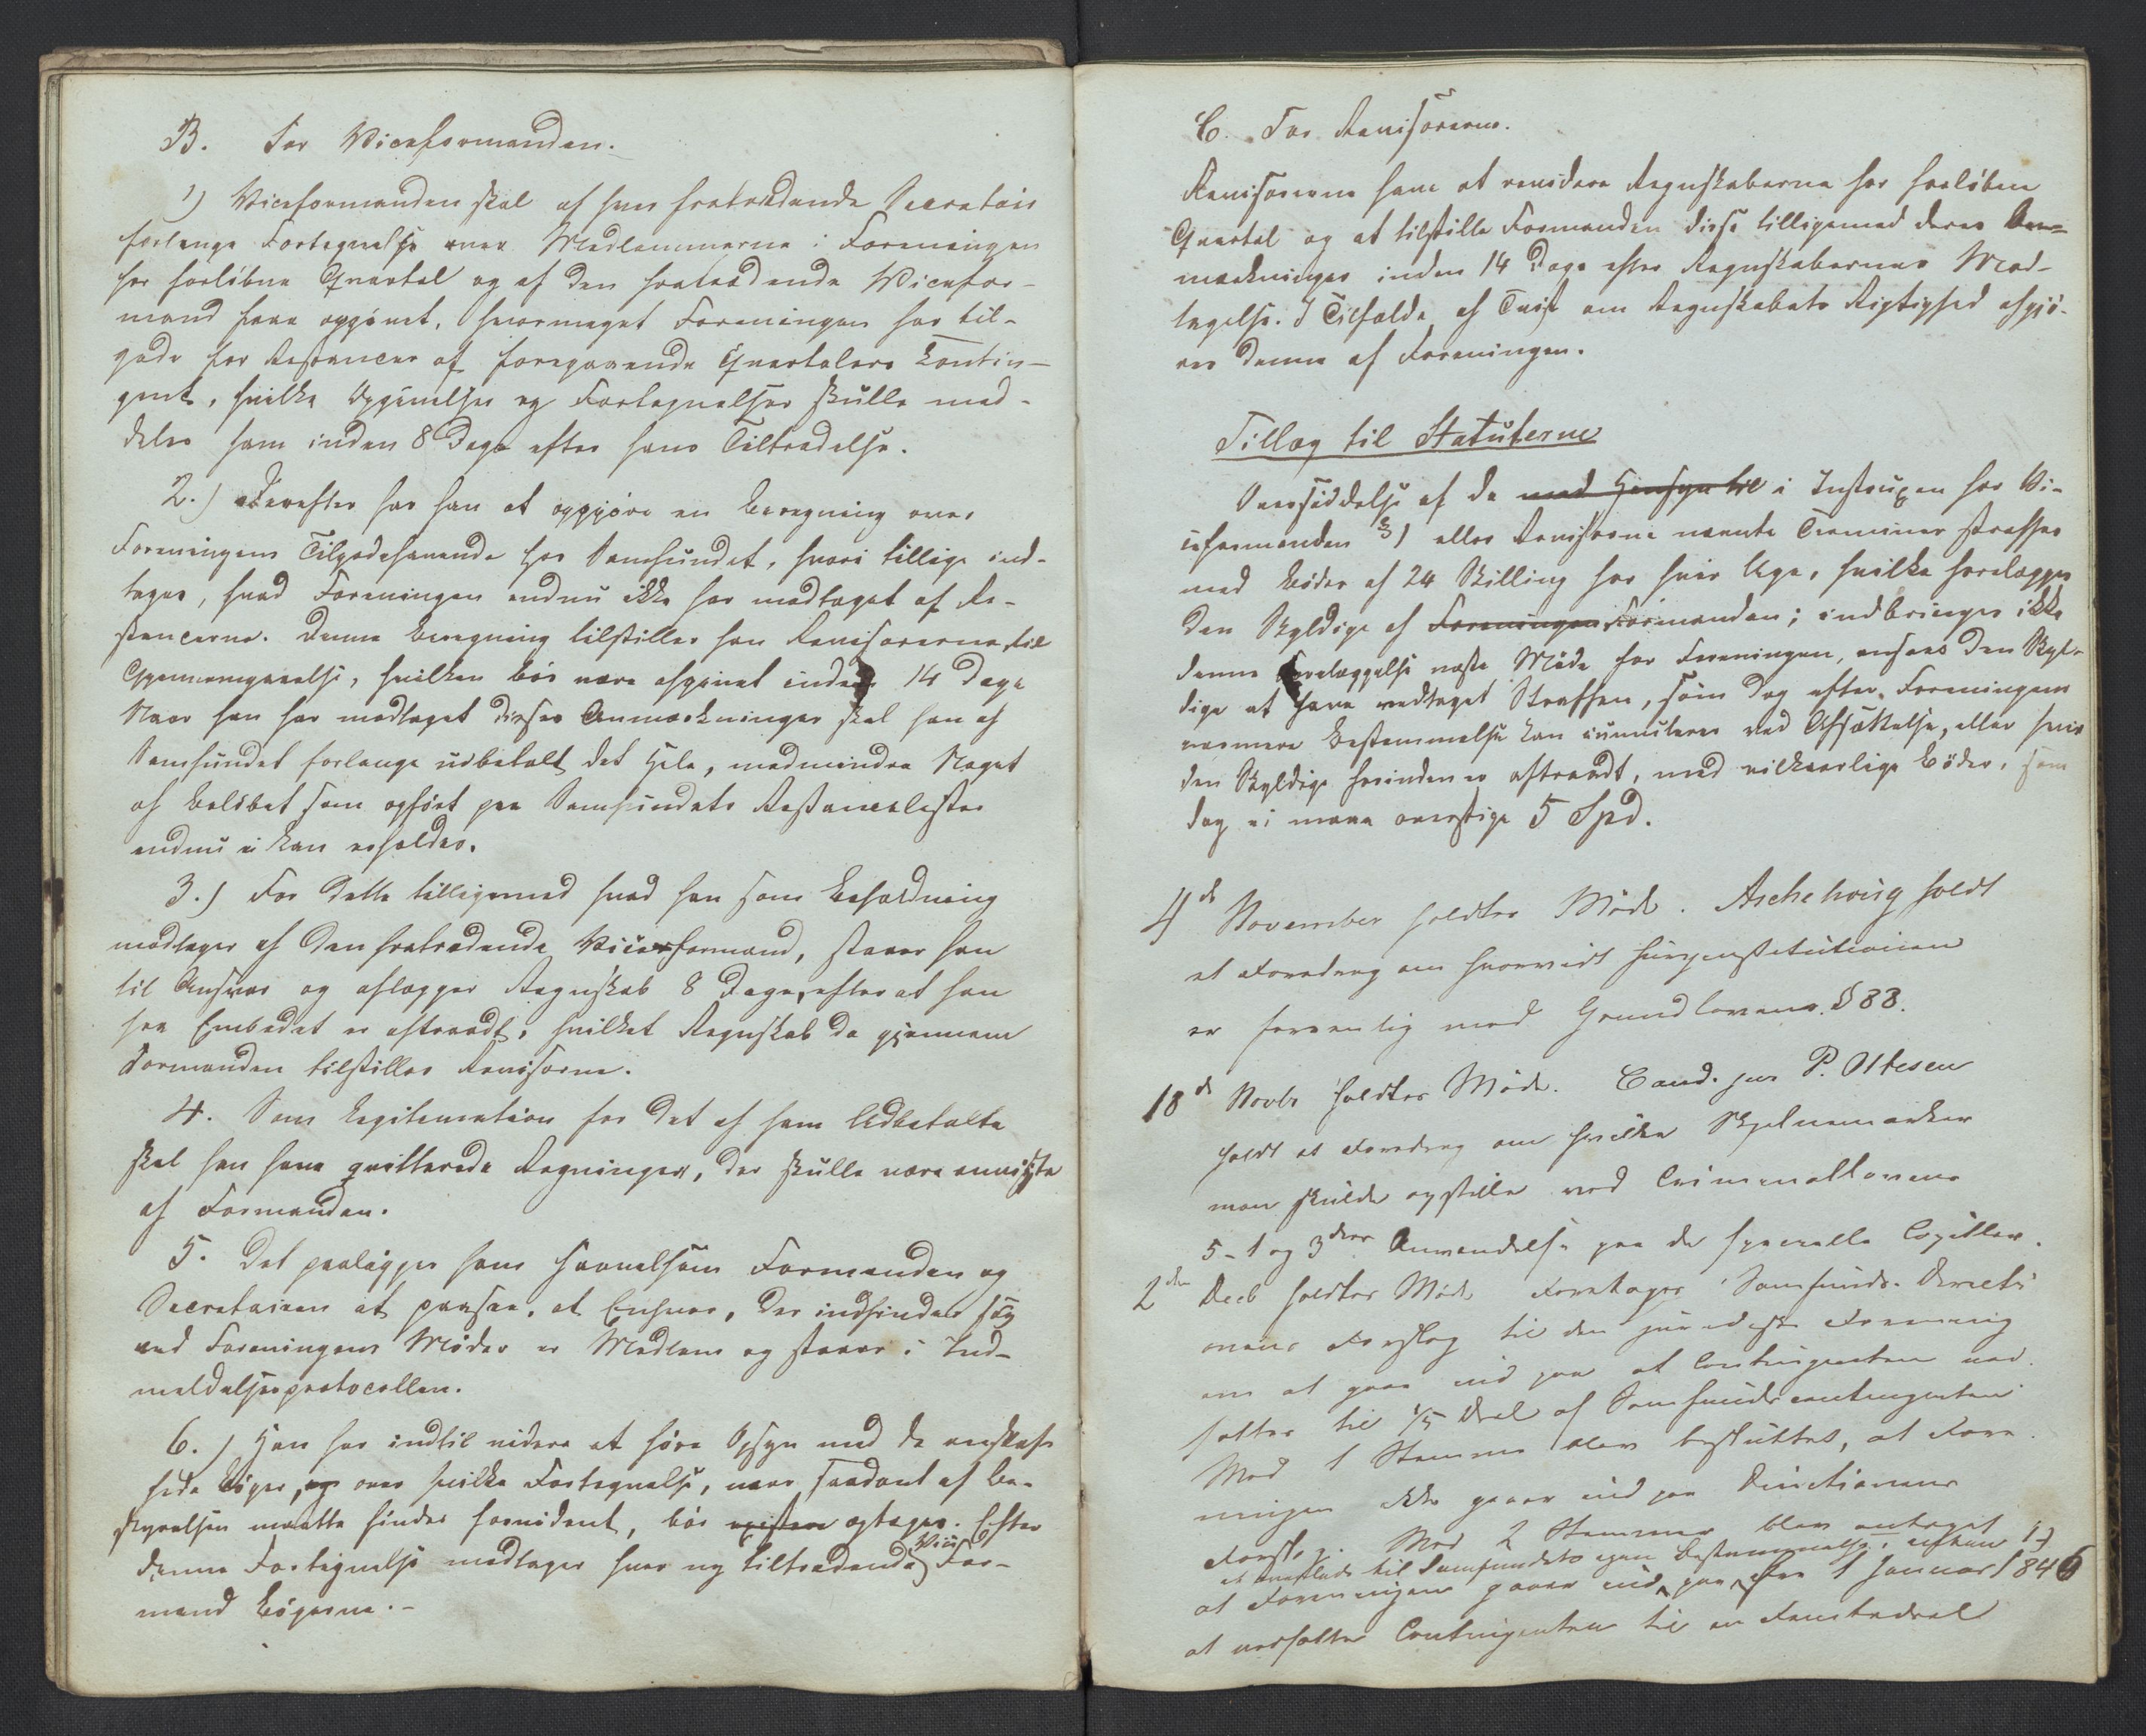 B. For Viceformanden.
1) Viceformanden skal af hver fratrædende Secretair
forlange Fortegnelse over Medlemmerne i Foreningen
for forløbne Qvartal og af den fratrædende Vicefor-
mand have opgivet, hvormeget Foreningen har til-
gode for Restancer af foregaaende Qvartalers Contin-
gent, hvilke Opgivelser og Fortegnelser skulle med-
deles ham inden 8 Dage efter hans Tiltrædelse.
2.) Derefter har han at opgjøre en Beregning over
Foreningens Tilgodehavende hos Samfundet, hvori tillige ind-
tages, hvad Foreningen endnu ikke har modtaget af Re-
stancerne. Denne Beregning tilstiller han Revisorerne til
Gjennemgaaelse, hvilken bør være afgivet inden 14 Dage
Naar han har modtaget disses Anmærkninger skal han af
Samfundet forlange udbetalt det Hele, medmindre Noget
af Beløbet som opført paa Samfundets Restanceliste
endnu ei kan erholdes.
3.) For dette tilligemed hvad han som Beholdning
modtager af den fratrædende Viceformand, staaer han
til Ansvar og aflægger Regnskab 8 Dage, efterat han
fra Embedet er aftraadt, hvilket Regnskab da gjennem
Formanden tilstilles Revisorne.
4. Som Legitimation for det af ham Udbetalte
skal han have qvitterede Regninger, der skulle være anviste
af Formanden.
5. Det paaligger ham saavelsom Formanden og
Secretairen at paasee, at Enhver, der indfinder sig
ved Foreningens Møder er Medlem og staaer i Ind-
meldelsesprotocollen.
6.) Han har indtil videre at føre Opsyn med de anskaf-
fede Bøger, og over hvilke Fortegnelse, naar saadant af Be-
styrelsen maatte findes fornødent, bør optages. Efter
denne Fortegnelse modtager hver ny tiltrædende Vice For-
mand Bøgerne.-
C. For Revisorerne.
Revisorerne have at revidere Regnskaberne for forløbne
Qvartal og at tilstille Formanden disse tilligemed deres An-
mærkninger inden 14 Dage efter Regnskabernes Mod-
tagelse. I Tilfælde af Tvist om Regnskabets Rigtighed afgjø-
res denne af Foreningen.
Tillæg til Statuterne
Oversiddelse af de med Hensyn til i Instruxen for Vi-
ceformanden § 1 eller Revisorne nævnte Terminer straffes
med Bøder af 24 Skilling for hver Uge, hvilke forelægges
den Skyldige af Foreningens Formanden; indbringes ikke
denne Forelæggelse næste Møde for Foreningen, ansees den Skyl-
dige at have vedtaget Straffen, som dog efter Foreningens
nærmere Bestemmelse kan cumuleres ved Afsættelse, eller hvis
den Skyldige forinden er aftraadt, med vilkaarlige Bøder, som
dog ei maa overstige 5 Spd.
4de November holdtes Møde. Aschehoug holdt
et Foredrag om hvorvidt Juryinstitutionen
er forenelig med Grundlovens § 88.
18de Novbr holdtes Møde. Cand. jur P. Ottesen
holdt et Foredrag om hvilke Skjelnemærker
man skulde opstille ved Criminallovens
5-1 og 3 Anvendelse paa de specielle Capitler.
2den Decb holdtes Møde Foretoges Samfunds-Directi
onens Forslag til den juridiske Forening
om at gaae ind paa at Contingenten ned-
sættes til 1/5 Deel af Samfundscontingenten
Med 1 Stemme blev besluttet, at Fore-
ningen ikke gaaer ind paa Directionens
Forslag. Med 2 Stemmer blev antaget
at overlade til Samfundets egen Bestemmelse,
at Foreningen gaaer ind paa fra 1 Januar 1846
at nedsætte Contingenten til en Femtedeel